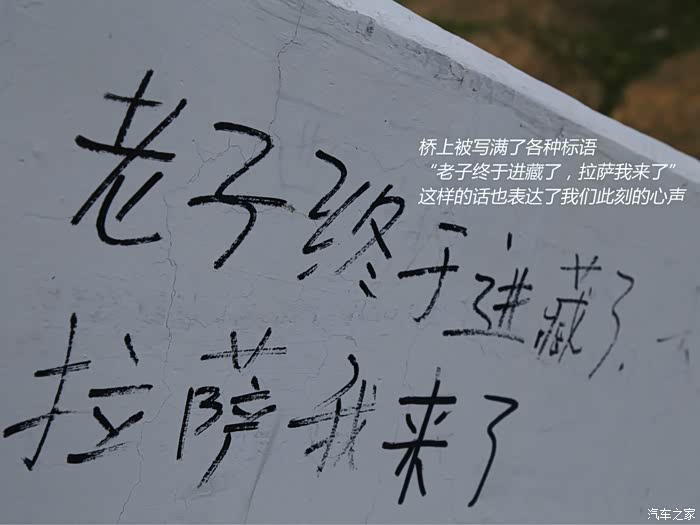 老子终于进藏了
拉萨我来了
桥上被写满了各种标语
“老子终于进藏了，拉萨我来了”
这样的话也表达了我们此刻的心声
汽车之家